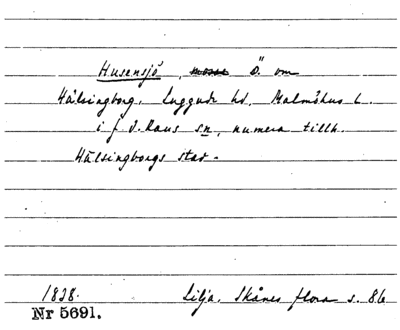 Husensjö, mosse Ö. om
Hälsingborg. Luggude hd, Malmöhus l.
i f. d. Raus sn, numera tillh.
Hälsingborgs stad.
1838. Lilja. Skånes flora s. 86
Nr 5691.